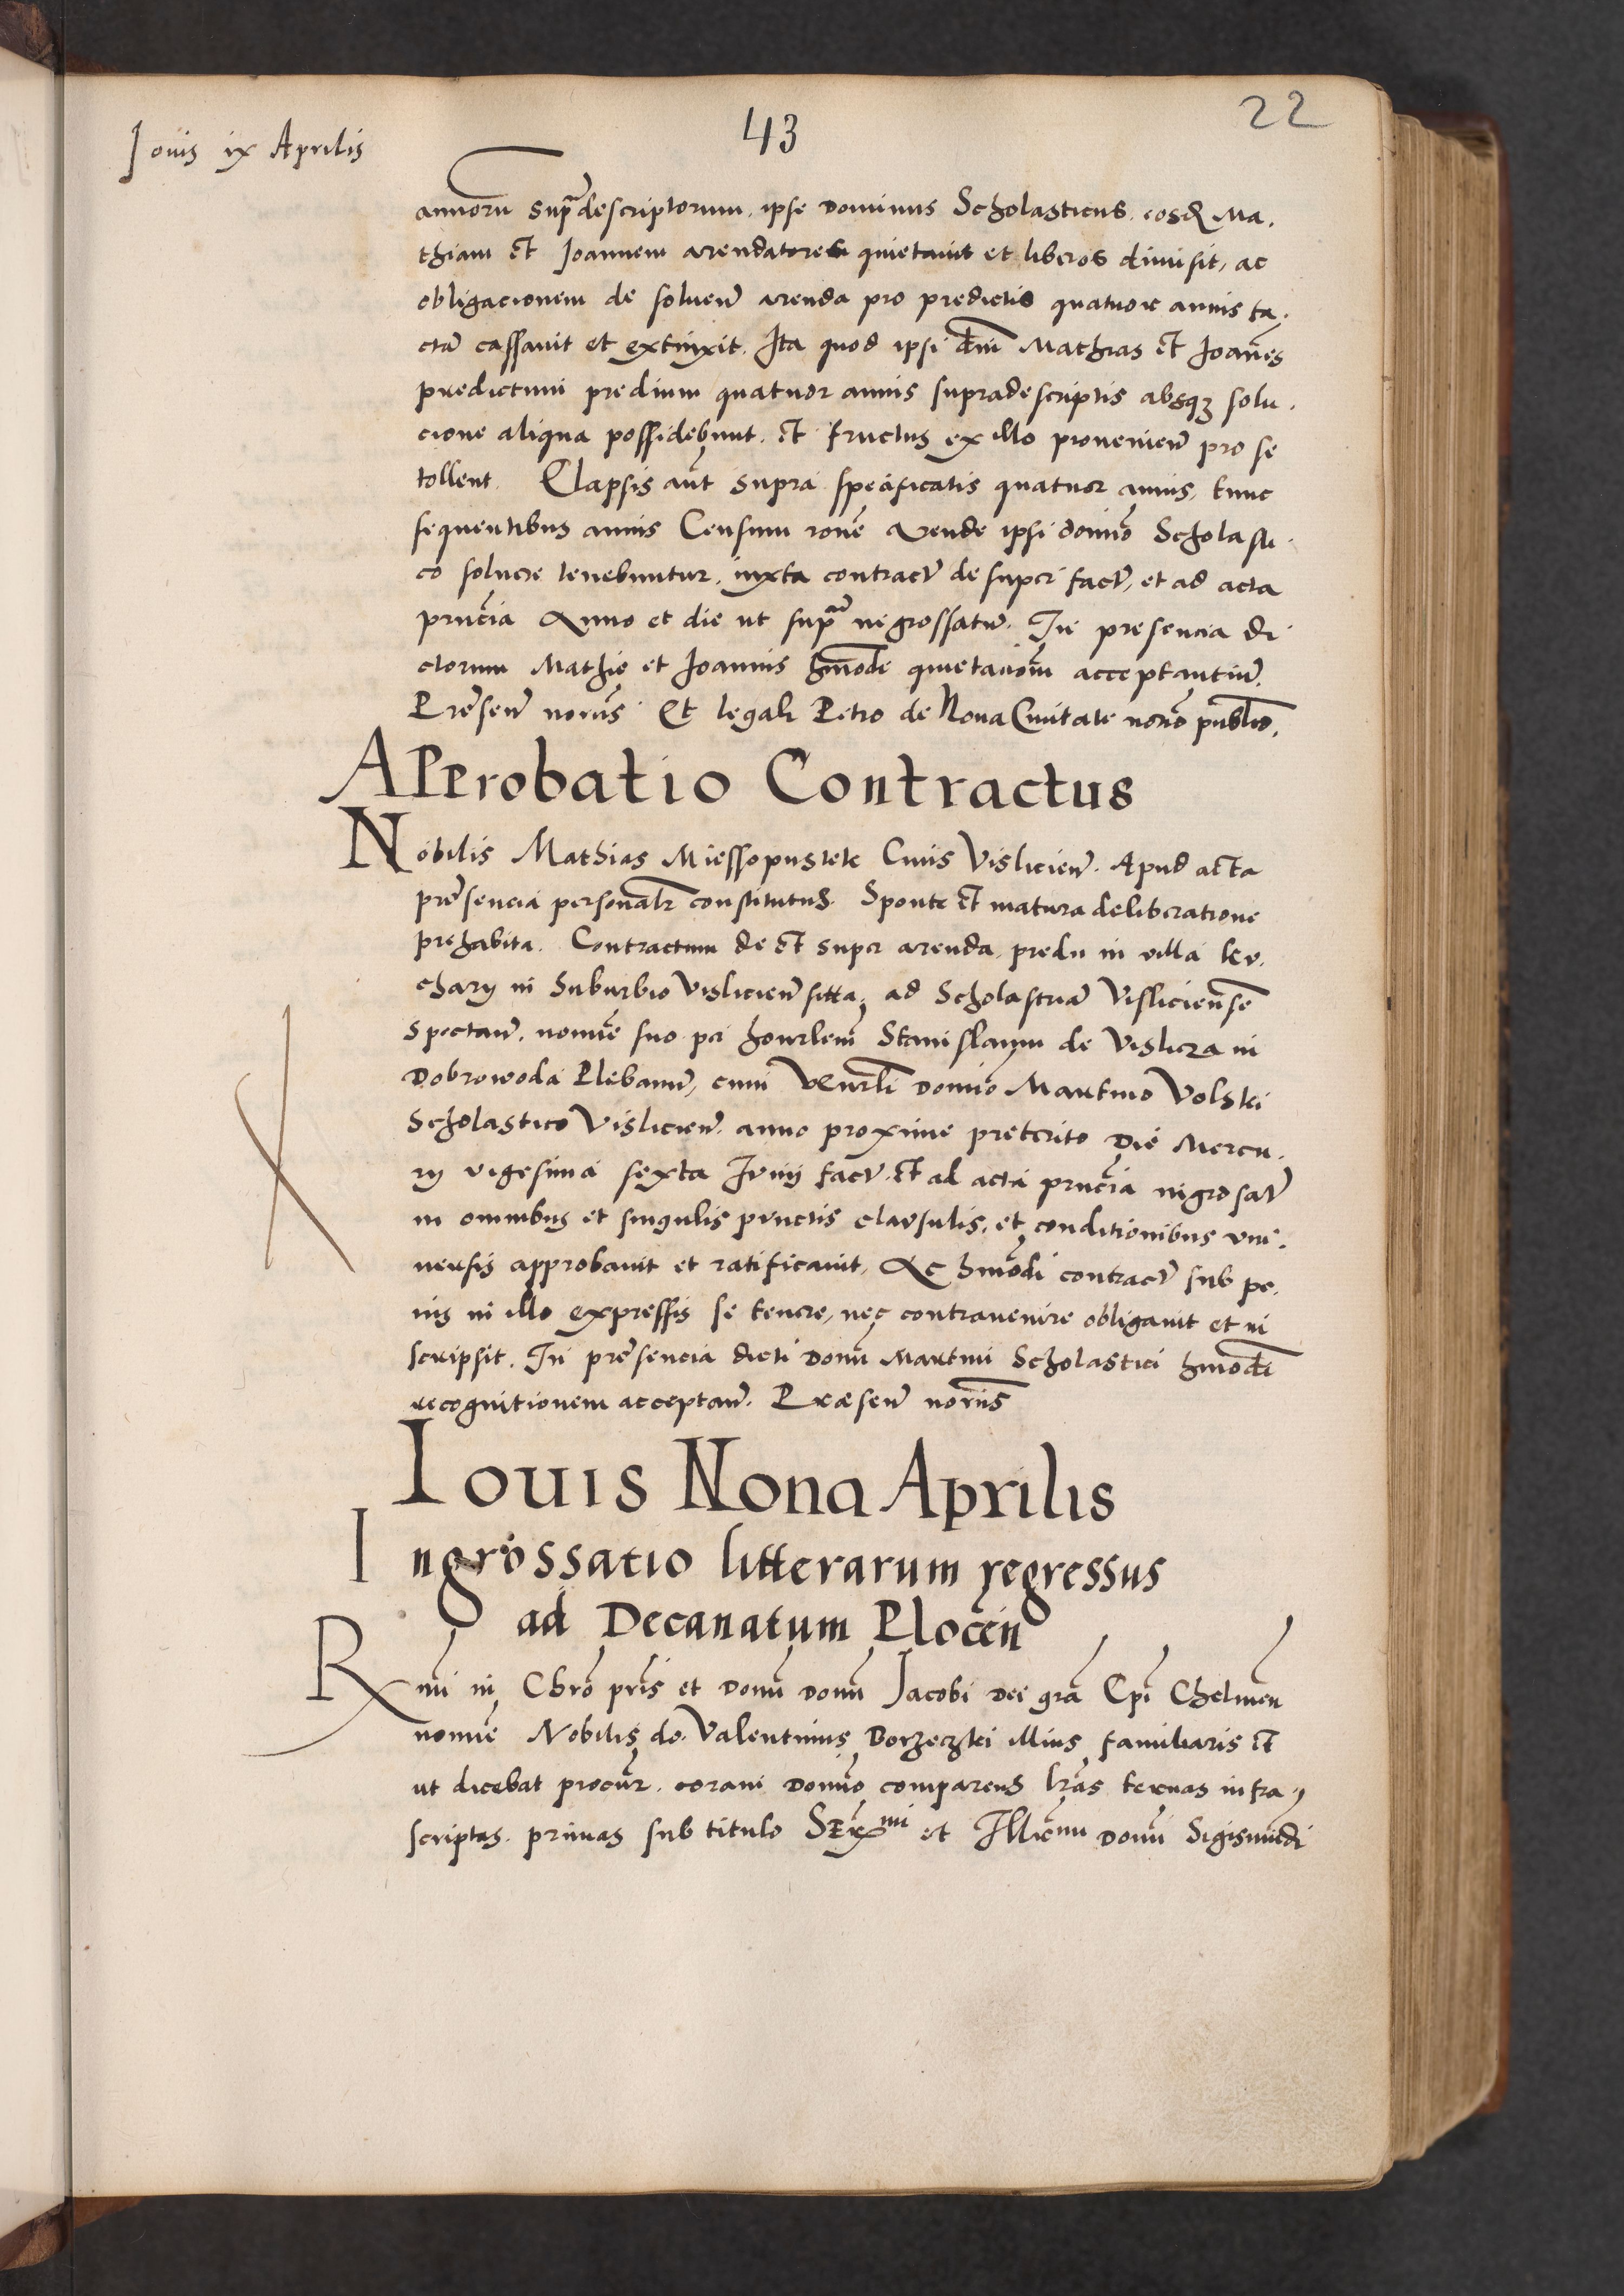 43
22
Iouis ix Aprilis
annoru supradescriptorum. ipse dominus Scholasticus. eosq Ma.
thiam et Ioannem arendatores quietauit et liberos dimisit, ac
obligacionem de soluen arenda pro predictis quatuor annis fa.
ctā cassauit et extinxit. Ita quod ipsi dni Mathias et Ioanēs
predictum predium quatuor annis supradescriptis absqz solu.
cione aliqua possidebunt. et fructus ex illo prouenien pro se
tollent. Elapsis aūt supra specificatis quatuor annis, tunc
sequentibus annis Censum rōne Arende ipsi domino Scholasti.
co soluere tenebuntur. iuxta contractū desuper factū, et ad acta
prnćia Anno et die ut supra ingrossatū. In presencia di
ctorum Mathie et Ioannis hmōdi quietacionem acceptantium.
Presen norijs Et legali Petro de Noua Ciuitate norio publico.
APProbatio Contractus
Nobilis Mathias Miessopustek Ciuis Vislicien. Apud acta
presencia personalr constitutus. Sponte et matura deliberatione
prehabita. Contractum de et super arenda. predii in villa Ku.
chary in Suburbio Vislicien sitta, ad Scholastriā Visliciensē
spectan. nomine suo per honorlem Stanislaum de Vislicza in
Dobrowoda Plebanū, cum Venrli domino Martino Volski
Scholastico Vislicien. anno proxime preterito Die Mercu.
rij vigesima sexta Iunij factū et ad acta prnćia ingrosatū
in omnibus et singulis punctis clausulis, et conditionibus vni.
uersis approbauit et ratificauit, Ac hmōdi contractū sub pe.
nis in illo expressis se tenere, nec contrauenire obligauit et in
scripsit. In presencia dicti Domi Martini Scholastici hmōdi
recognitionem acceptan. Præsen norijs
Iouis Nona Aprilis
Ingrossatio litterarum regressus
ad Decanatum Plocen
Rmi in Chro pris et Domi domi Jacobi dei gra Epi Chelmen
nomine Nobilis do. Valentinus Borzeczki illius familiaris et
ut dicebat procur. coram domino comparens lras ternas infra
scriptas. primas sub titulo SEr.mi et Illmi domi Sigismūdi